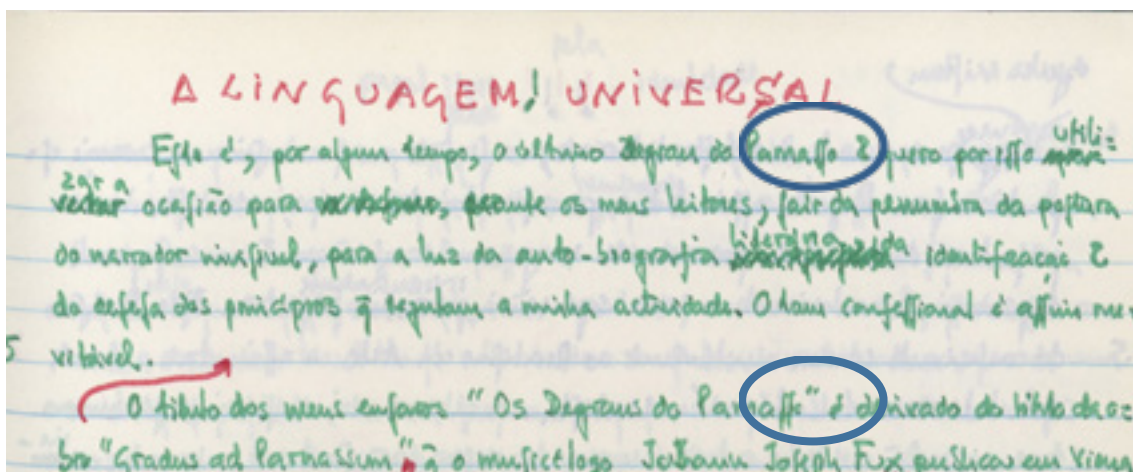 A LINGUAGEM! UNIVERSAL
Eſte é, por algum tempo, o último Degrau do Parnaſſo & quero por iſſo utili=
zar a ocaſião para, perante os meus leitores, ſair da penumbra da poſtura
do narrador inviſível, para a luz da auto-biografia literária da identificação &
da defeſa dos princípios q̃ regulam a minha actividade. O tom confeſſional é aſſim ine-
5 vitável.
O título dos meus enſaios "Os Degraus do Parnaſſo" é derivado do título da o=
bra "Gradus ad Parnassum", q̃ o muſicólogo Johann Joſeph Fux publicou em Viena